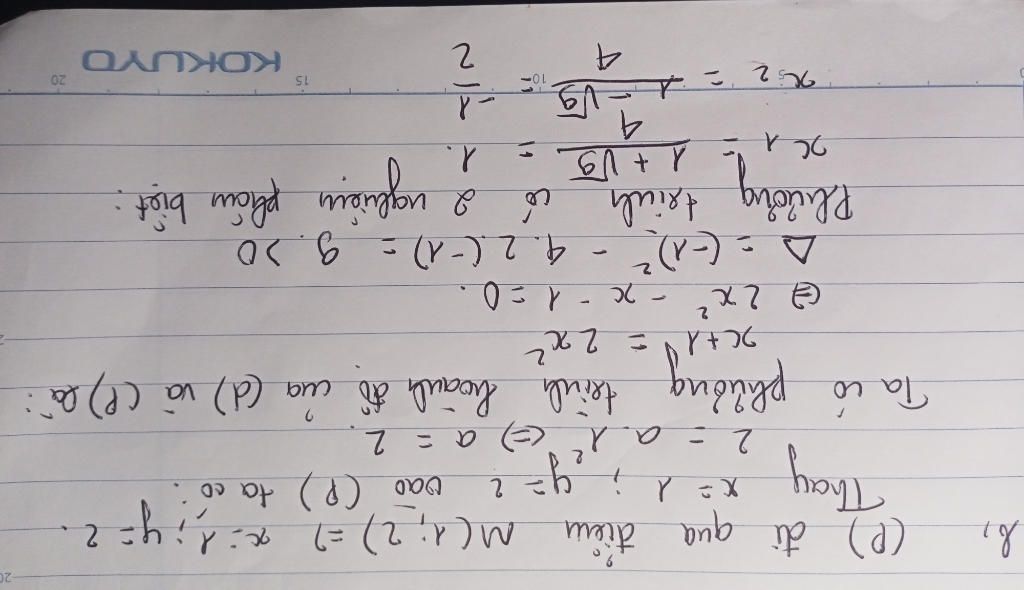 b, (P) đi qua điểm M(1;2) => x=1; y=2.
Thay x=1; y=2 vào (P) ta có:
2 = a.1² <=> a = 2.
Ta có phương trình hoành độ của (d) và (P) là:
x+1 = 2x²
<=> 2x² - x - 1 = 0.
Δ = (-1)² - 4.2.(-1) = 9 > 0
Phương trình có 2 nghiệm phân biệt:
x1 = (1+√9)/4 = 1.
x2 = (1-√9)/4 = -1/2
5 10 15 20
KOKUYO